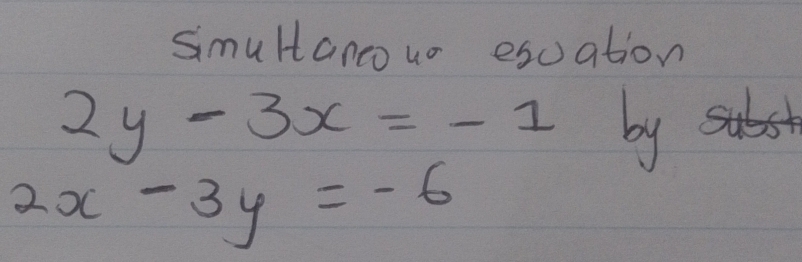 simultaneous esuation
2y - 3x = - 1 by
2x - 3y = - 6